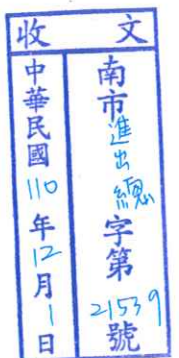 收文
南市進出總字第21539號
中華民國110年12月1日